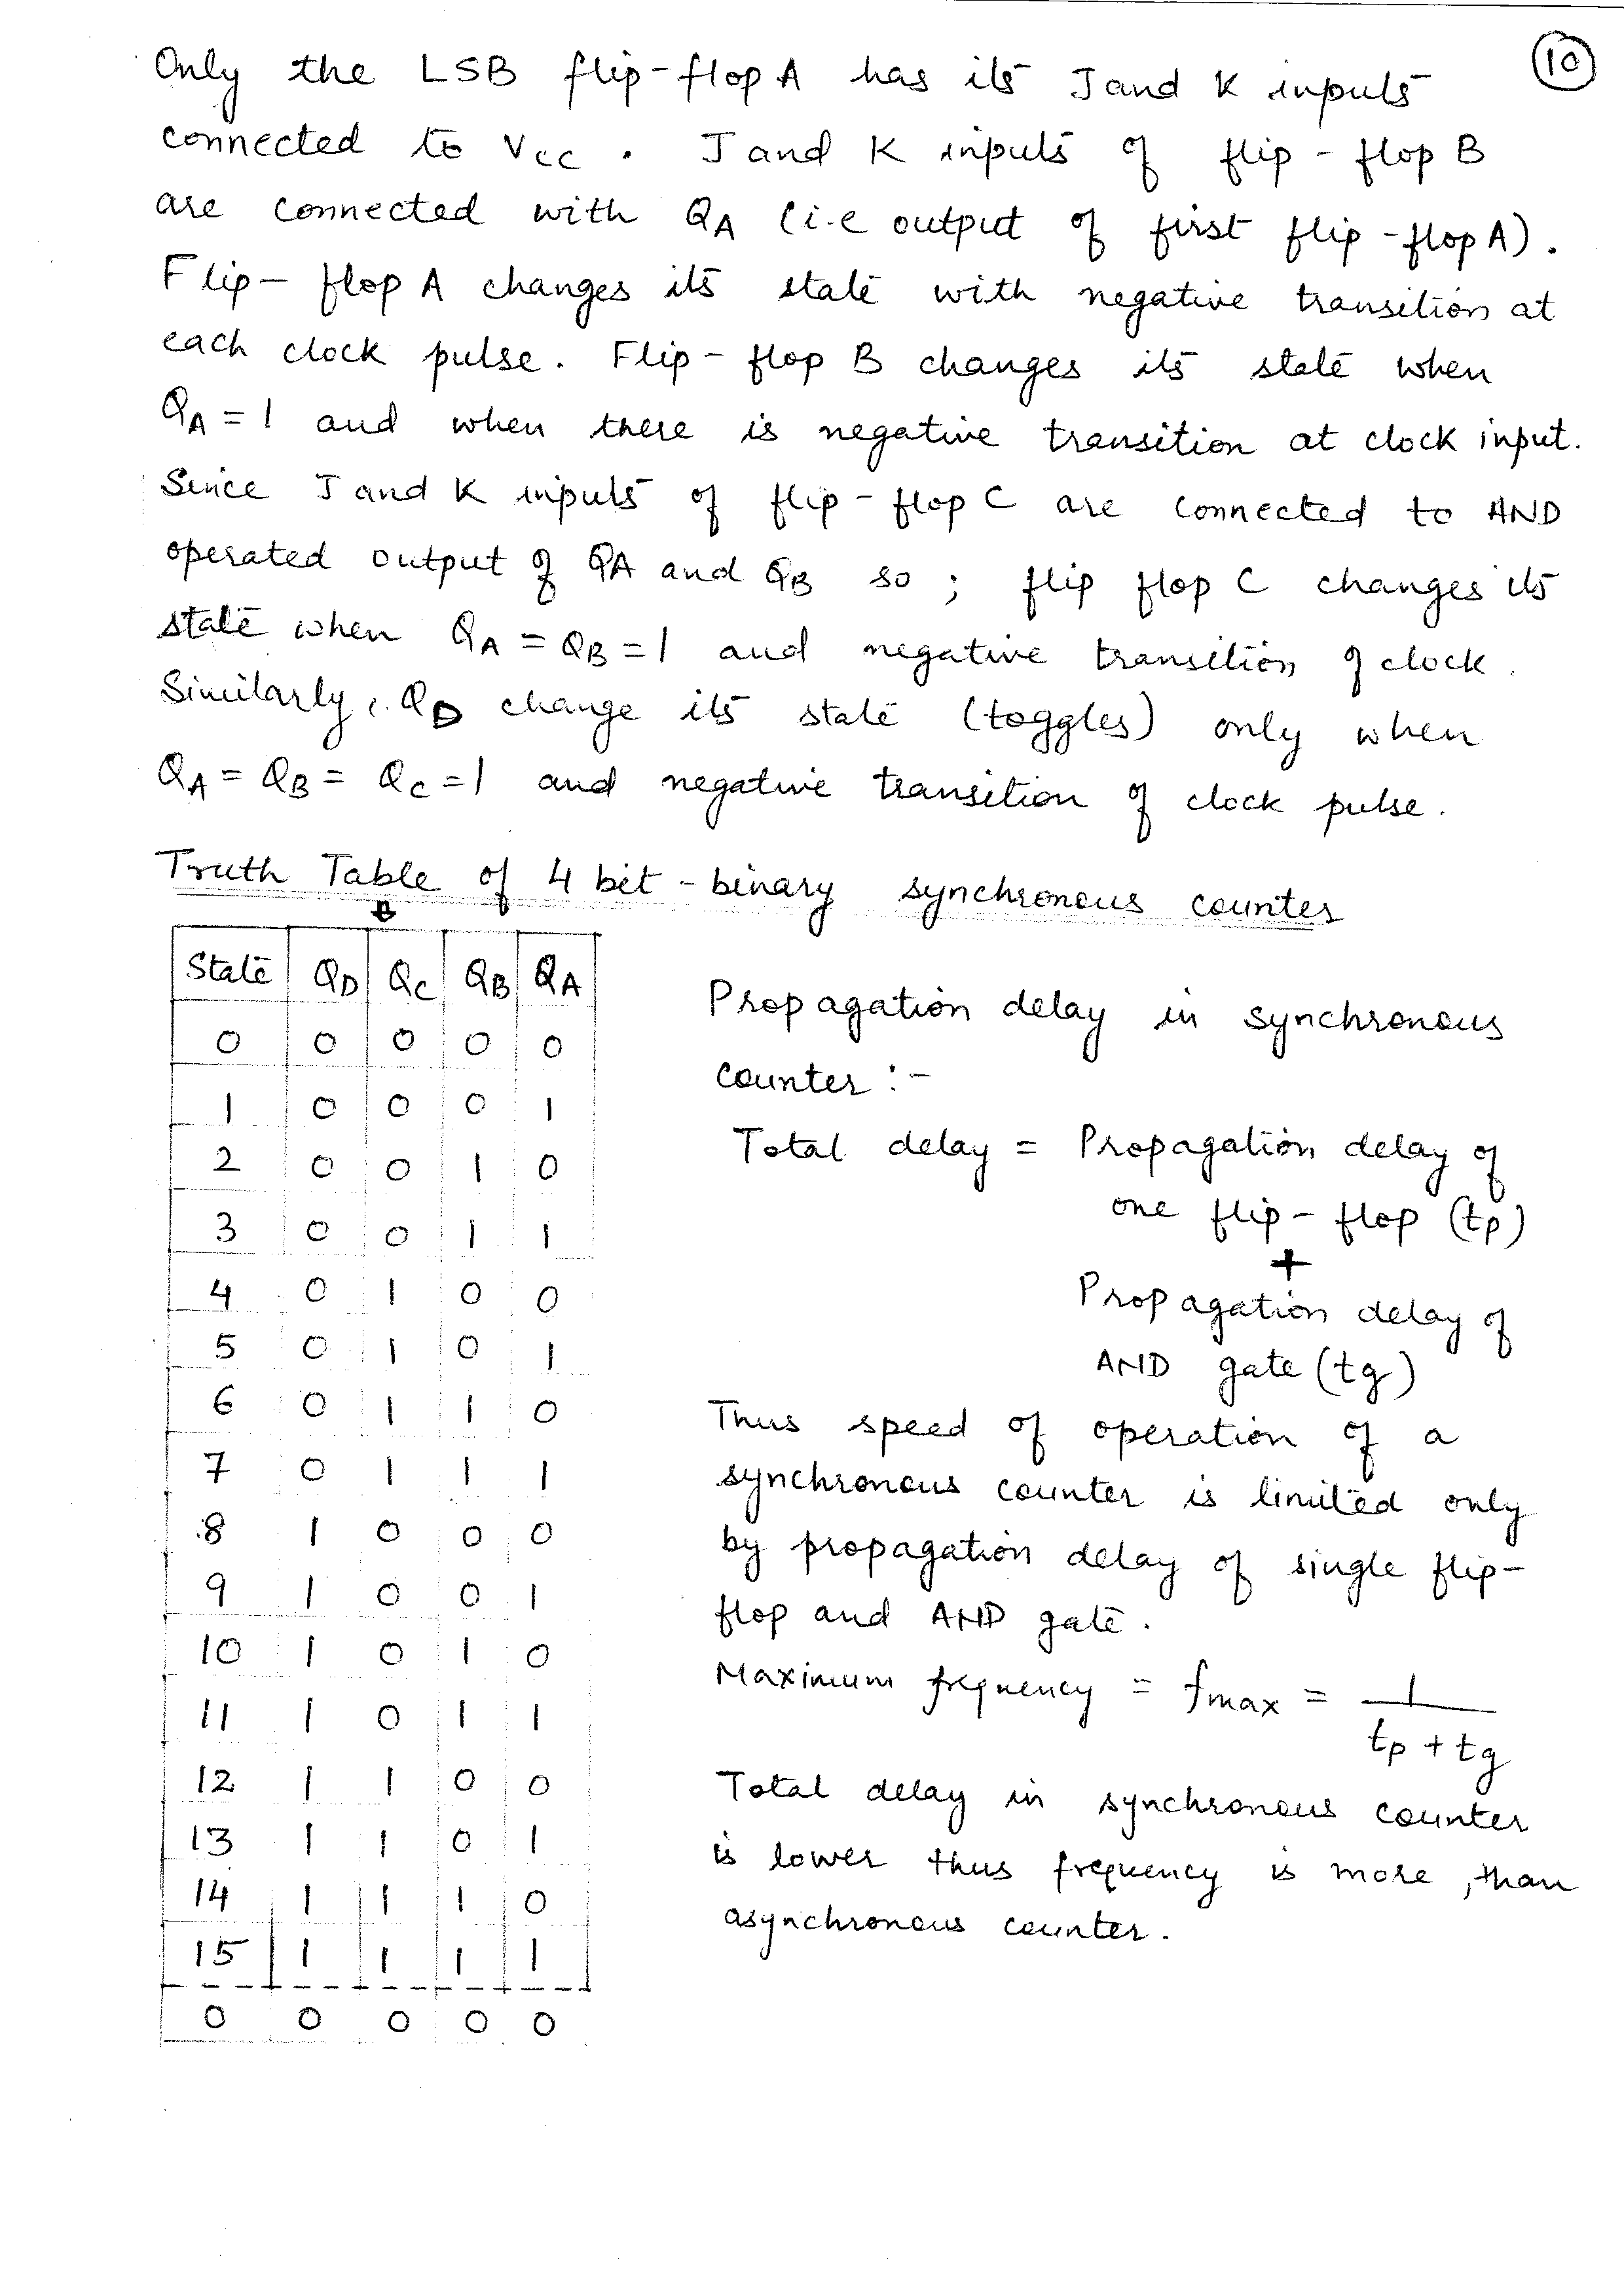 10
Only the LSB flip-flop A has its J and K inputs
connected to VCC . J and K inputs of flip-flop B
are connected with QA (i.e output of first flip-flop A).
Flip-flop A changes its state with negative transition at
each clock pulse. Flip-flop B changes its state when
QA = 1 and when there is negative transition at clock input.
Since J and K inputs of flip-flop C are connected to AND
operated output of QA and QB so ; flip flop C changes its
state when QA = QB = 1 and negative transition of clock.
Similarly, QD change its state (toggles) only when
QA = QB = QC = 1 and negative transition of clock pulse.
Truth Table of 4 bit-binary synchronous counter
State QD QC QB QA
0 0 0 0 0
1 0 0 0 1
2 0 0 1 0
3 0 0 1 1
4 0 1 0 0
5 0 1 0 1
6 0 1 1 0
7 0 1 1 1
8 1 0 0 0
9 1 0 0 1
10 1 0 1 0
11 1 0 1 1
12 1 1 0 0
13 1 1 0 1
14 1 1 1 0
15 1 1 1 1
0 0 0 0 0
Propagation delay in synchronous
counter :-
Total delay = Propagation delay of
one flip-flop (tp)
+
Propagation delay of
AND gate (tg)
Thus speed of operation of a
synchronous counter is limited only
by propagation delay of single flip-
flop and AND gate.
Maximum frequency = fmax = 1
tp + tg
Total delay in synchronous counter
is lower thus frequency is more, than
asynchronous counter.